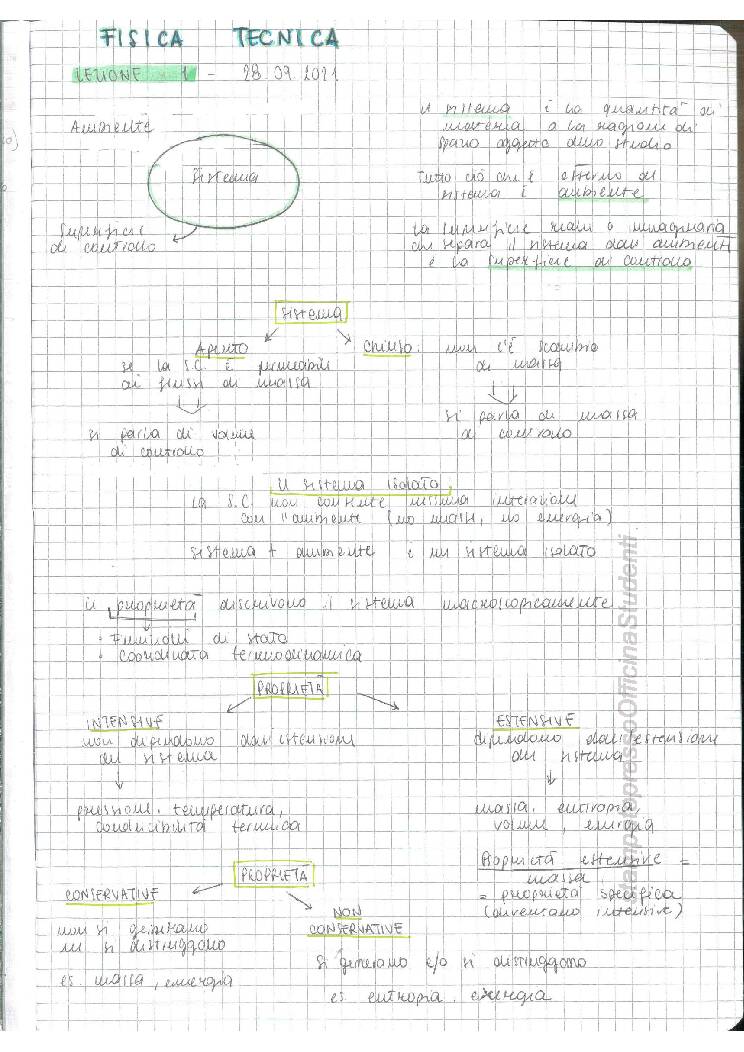 FISICA TECNICA
LEZIONE 1 - 28.09.2021
Ambiente
Sistema
Superficie
di controllo
Il sistema è la quantità di
materia o la regione di
spazio oggetto dello studio
Tutto ciò che è esterno al
sistema è ambiente
La superficie reale o immaginaria
che separa il sistema dall'ambiente
è la superficie di controllo
Sistema
Aperto
se la S.C. è permeabile
ai flussi di massa
si parla di volume
di controllo
Chiuso: non c'è scambio
di massa
si parla di massa
di controllo
Il sistema isolato
la S.C. non consente nessuna interazione
con l'ambiente (no massa, no energia)
sistema + ambiente è un sistema isolato
Le proprietà descrivono il sistema macroscopicamente
• Funzioni di stato
• coordinata termodinamica
PROPRIETÀ
INTENSIVE
non dipendono dall'estensione
del sistema
pressione, temperatura,
conducibilità termica
ESTENSIVE
dipendono dall'estensione
del sistema
massa, entropia,
volume, energia
Proprietà estensive =
massa
= proprietà specifica
(diventano intensive)
PROPRIETÀ
CONSERVATIVE
non si generano
né si distruggono
es. massa, energia
NON
CONSERVATIVE
si generano e/o si distruggono
es. entropia, exergia
stampato presso OfficinaStudenti